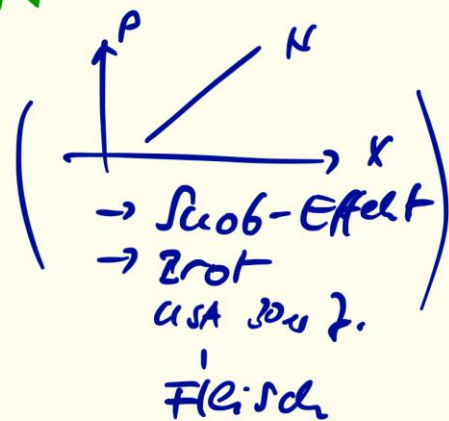 P
N
X
→ Snob-Effekt
→ Brot
USA 30er J.
Fleisch